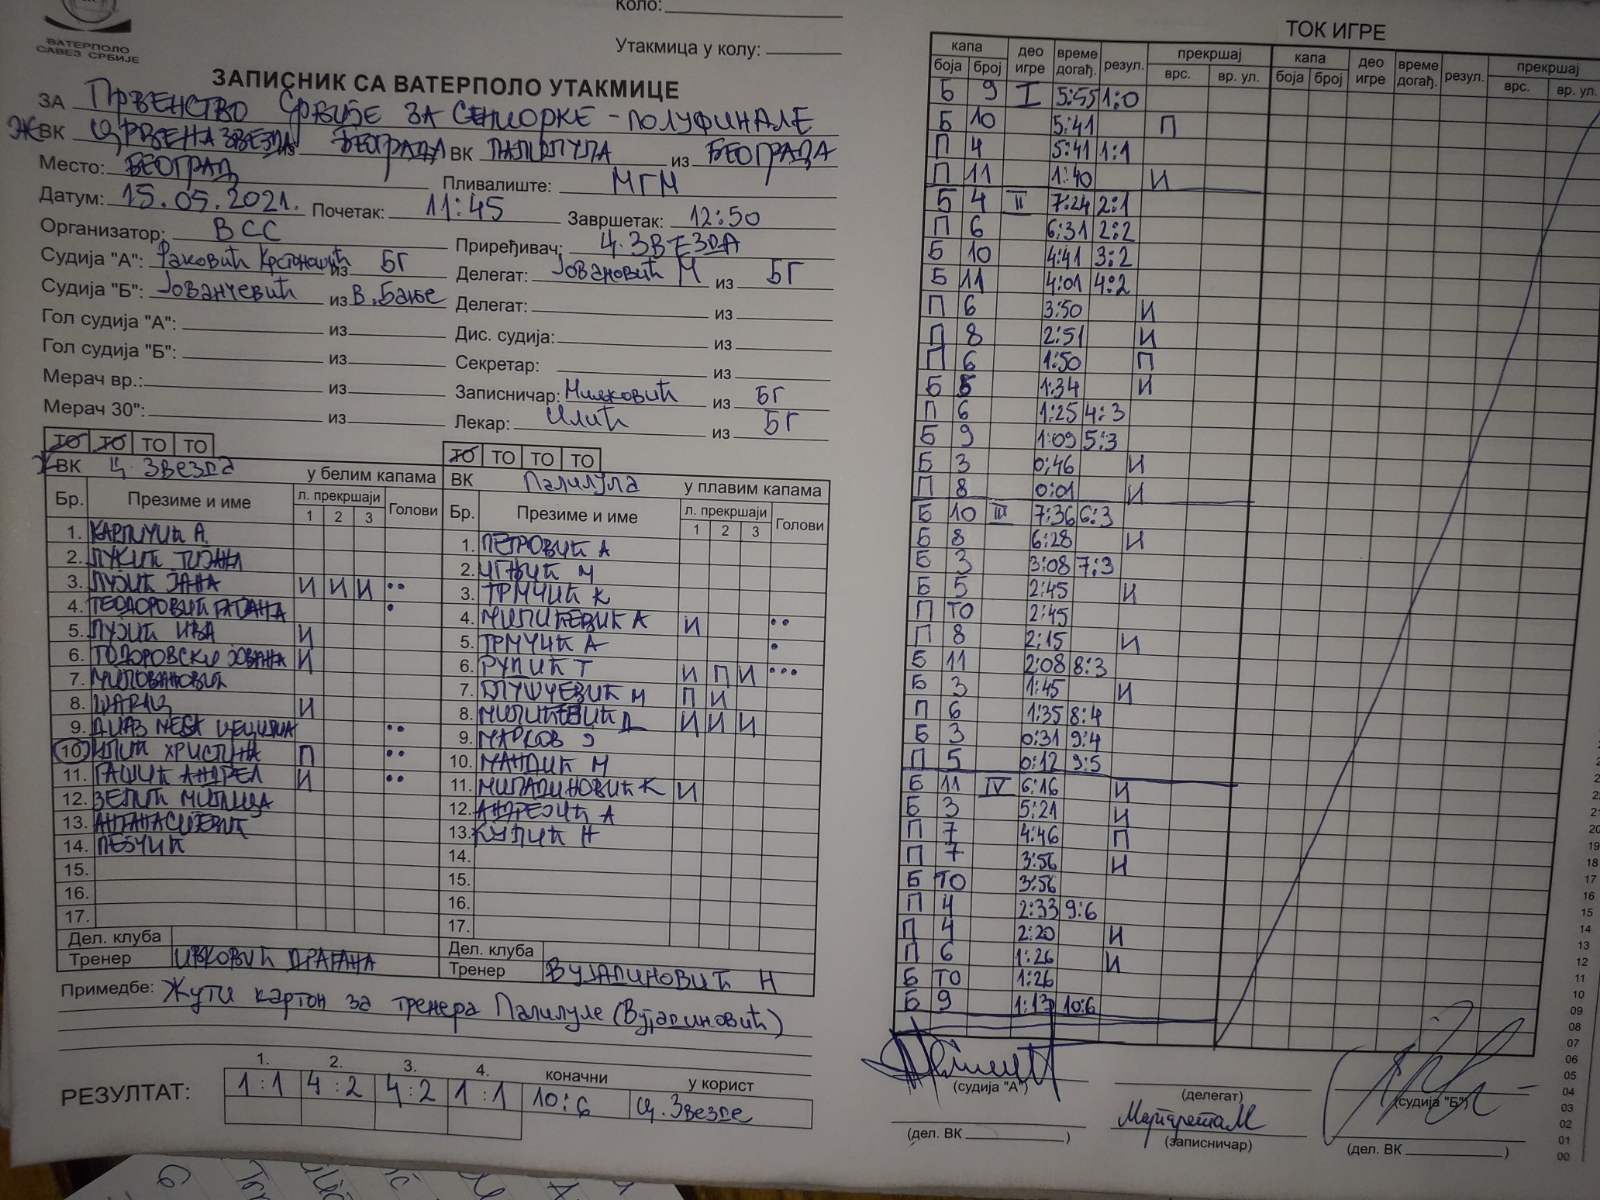 ВАТЕРПОЛО
САВЕЗ СРБИЈЕ
Коло:
Утакмица у колу:
ЗАПИСНИК СА ВАТЕРПОЛО УТАКМИЦЕ
ЗА ПРВЕНСТВО СРБИЈЕ ЗА СЕНИОРКЕ - ПОЛУФИНАЛЕ
ЖВК ЦРВЕНА ЗВЕЗДА из БЕОГРАДА ВК ПАЛИЛУЛА из БЕОГРАДА
Место: БЕОГРАД Пливалиште: МГМ
Датум: 15.05.2021. Почетак: 11:45 Завршетак: 12:50
Организатор: ВСС Приређивач: Ц. ЗВЕЗДА
Судија "А": Раковић из БГ Делегат: Јовановић М из БГ
Судија "Б": Јованчевић из В. Бање Делегат: из
Гол судија "А": из Дис. судија: из
Гол судија "Б": из Секретар: из
Мерач вр.: из Записничар: Милковић из БГ
Мерач 30": из Лекар: Илић из БГ
ТО ТО ТО ТО ТО ТО ТО ТО
ЖВК Ц. Звезда у белим капама ВК Палилула у плавим капама
Бр. Презиме и име л. прекршаји 1 2 3 Голови Бр. Презиме и име л. прекршаји 1 2 3 Голови
1. КАРПИЧИЋ А. 1. ПЕТРОВИЋ А
2. ЛУКИЋ ТИЈАНА 2. М
3. ЛУЈИЋ ЈАНА И И И •• 3. ТРМЧИЋ К
4. ТЕОДОРОВИЋ ТАТЈАНА • 4. МИЛИЋЕВИЋ А И ••
5. ЛУЈИЋ ИВА И 5. ТРМЧИЋ А •
6. ТОДОРОВСКИ ЈОВАНА И 6. РУЛИЋ Т И П И •••
7. МИЛОВАНОВИЋ 7. М П И
8. ШАРАЦ И 8. МИЛИЋЕВИЋ Д И И И
9. ДИАЗ МЕСА ЦЕЦИЛИА •• 9. МАРКОВ Ј
10. ИЛИЋ ХРИСТИНА П •• 10. МАНДИЋ М
11. ГАШИЋ АНДРЕА И •• 11. МИЛАДИНОВИЋ К И
12. ЗЕЛИЋ МИЛИЦА 12. АНДРЕЈИЋ А
13. АТАНАСИЈЕВИЋ 13. КУЛИЋ Н
14. ПЕЈЧИЋ 14.
15. 15.
16. 16.
17. 17.
Дел. клуба Дел. клуба
Тренер ИВКОВИЋ ДРАГАНА Тренер ВУЈАДИНОВИЋ Н
Примедбе: Жути картон за тренера Палилуле (Вујадиновић)
1. 2. 3. 4. коначни у корист
РЕЗУЛТАТ: 1 : 1 4 : 2 4 : 2 1 : 1 10:6 Ц. Звезде
ТОК ИГРЕ
капа део игре време догађ. резул. прекршај капа део игре време догађ. резул. прекршај
боја број врс. вр. ул. боја број врс. вр. ул.
Б 9 I 5:55 1:0
Б 10 5:41 П
П 4 5:41 1:1
П 11 1:40 И
Б 4 II 7:24 2:1
П 6 6:31 2:2
Б 10 4:41 3:2
Б 11 4:01 4:2
П 6 3:50 И
П 8 2:51 И
П 6 1:50 П
Б 6 1:34 И
П 6 1:25 4:3
Б 9 1:09 5:3
Б 3 0:46 И
П 8 0:01 И
Б 10 III 7:36 6:3
Б 8 6:28 И
Б 3 3:08 7:3
Б 5 2:45 И
П ТО 2:45
П 8 2:15 И
Б 11 2:08 8:3
Б 3 1:45 И
П 6 1:35 8:4
Б 3 0:31 9:4
П 5 0:12 9:5
Б 11 IV 6:16 И
Б 3 5:21 И
П 7 4:46 П
П 7 3:56 И
Б ТО 3:56
П 4 2:33 9:6
П 4 2:20 И
П 6 1:26 И
Б ТО 1:26
Б 9 1:13 10:6
20
19
18
17
16
15
14
13
12
11
10
09
08
07
06
05
04
03
02
01
00
(судија "А") (делегат) (судија "Б")
(дел. ВК ) (записничар) (дел. ВК )